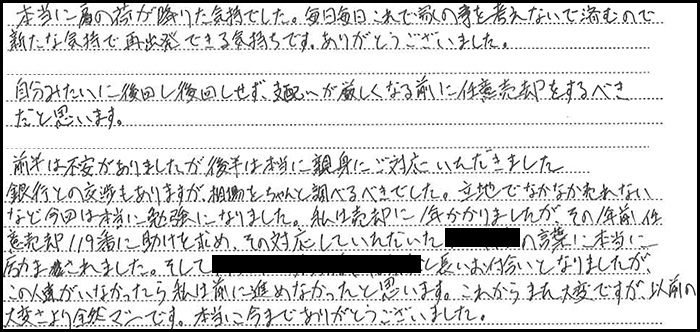 本当に肩の荷が降りた気持でした。毎日毎日これで家の事を考えないで済むので
新たな気持で再出発できる気持ちです。ありがとうございました。
自分みたいに後回し後回しせず、支配が厳しくなる前に任意売却をするべき
だと思います。
前半は不安がありましたが後半は本当に親身にご対応いただきました
銀行との交渉もありますが、相場をちゃんと調べるべきでした。立地でなかなか売れない
など今回は本当に勉強になりました。私は売却に1年かかりましたが、その1年前任
意売却119番に助けを求め、その対応していただいた の言葉に本当に
励まされました。そして と長いお付合いとなりましたが、
この人達がいなかったら私は前に進めなかったと思います。これからまた大変ですが、以前の
大変さより全然マシです。本当に今までありがとうございました。